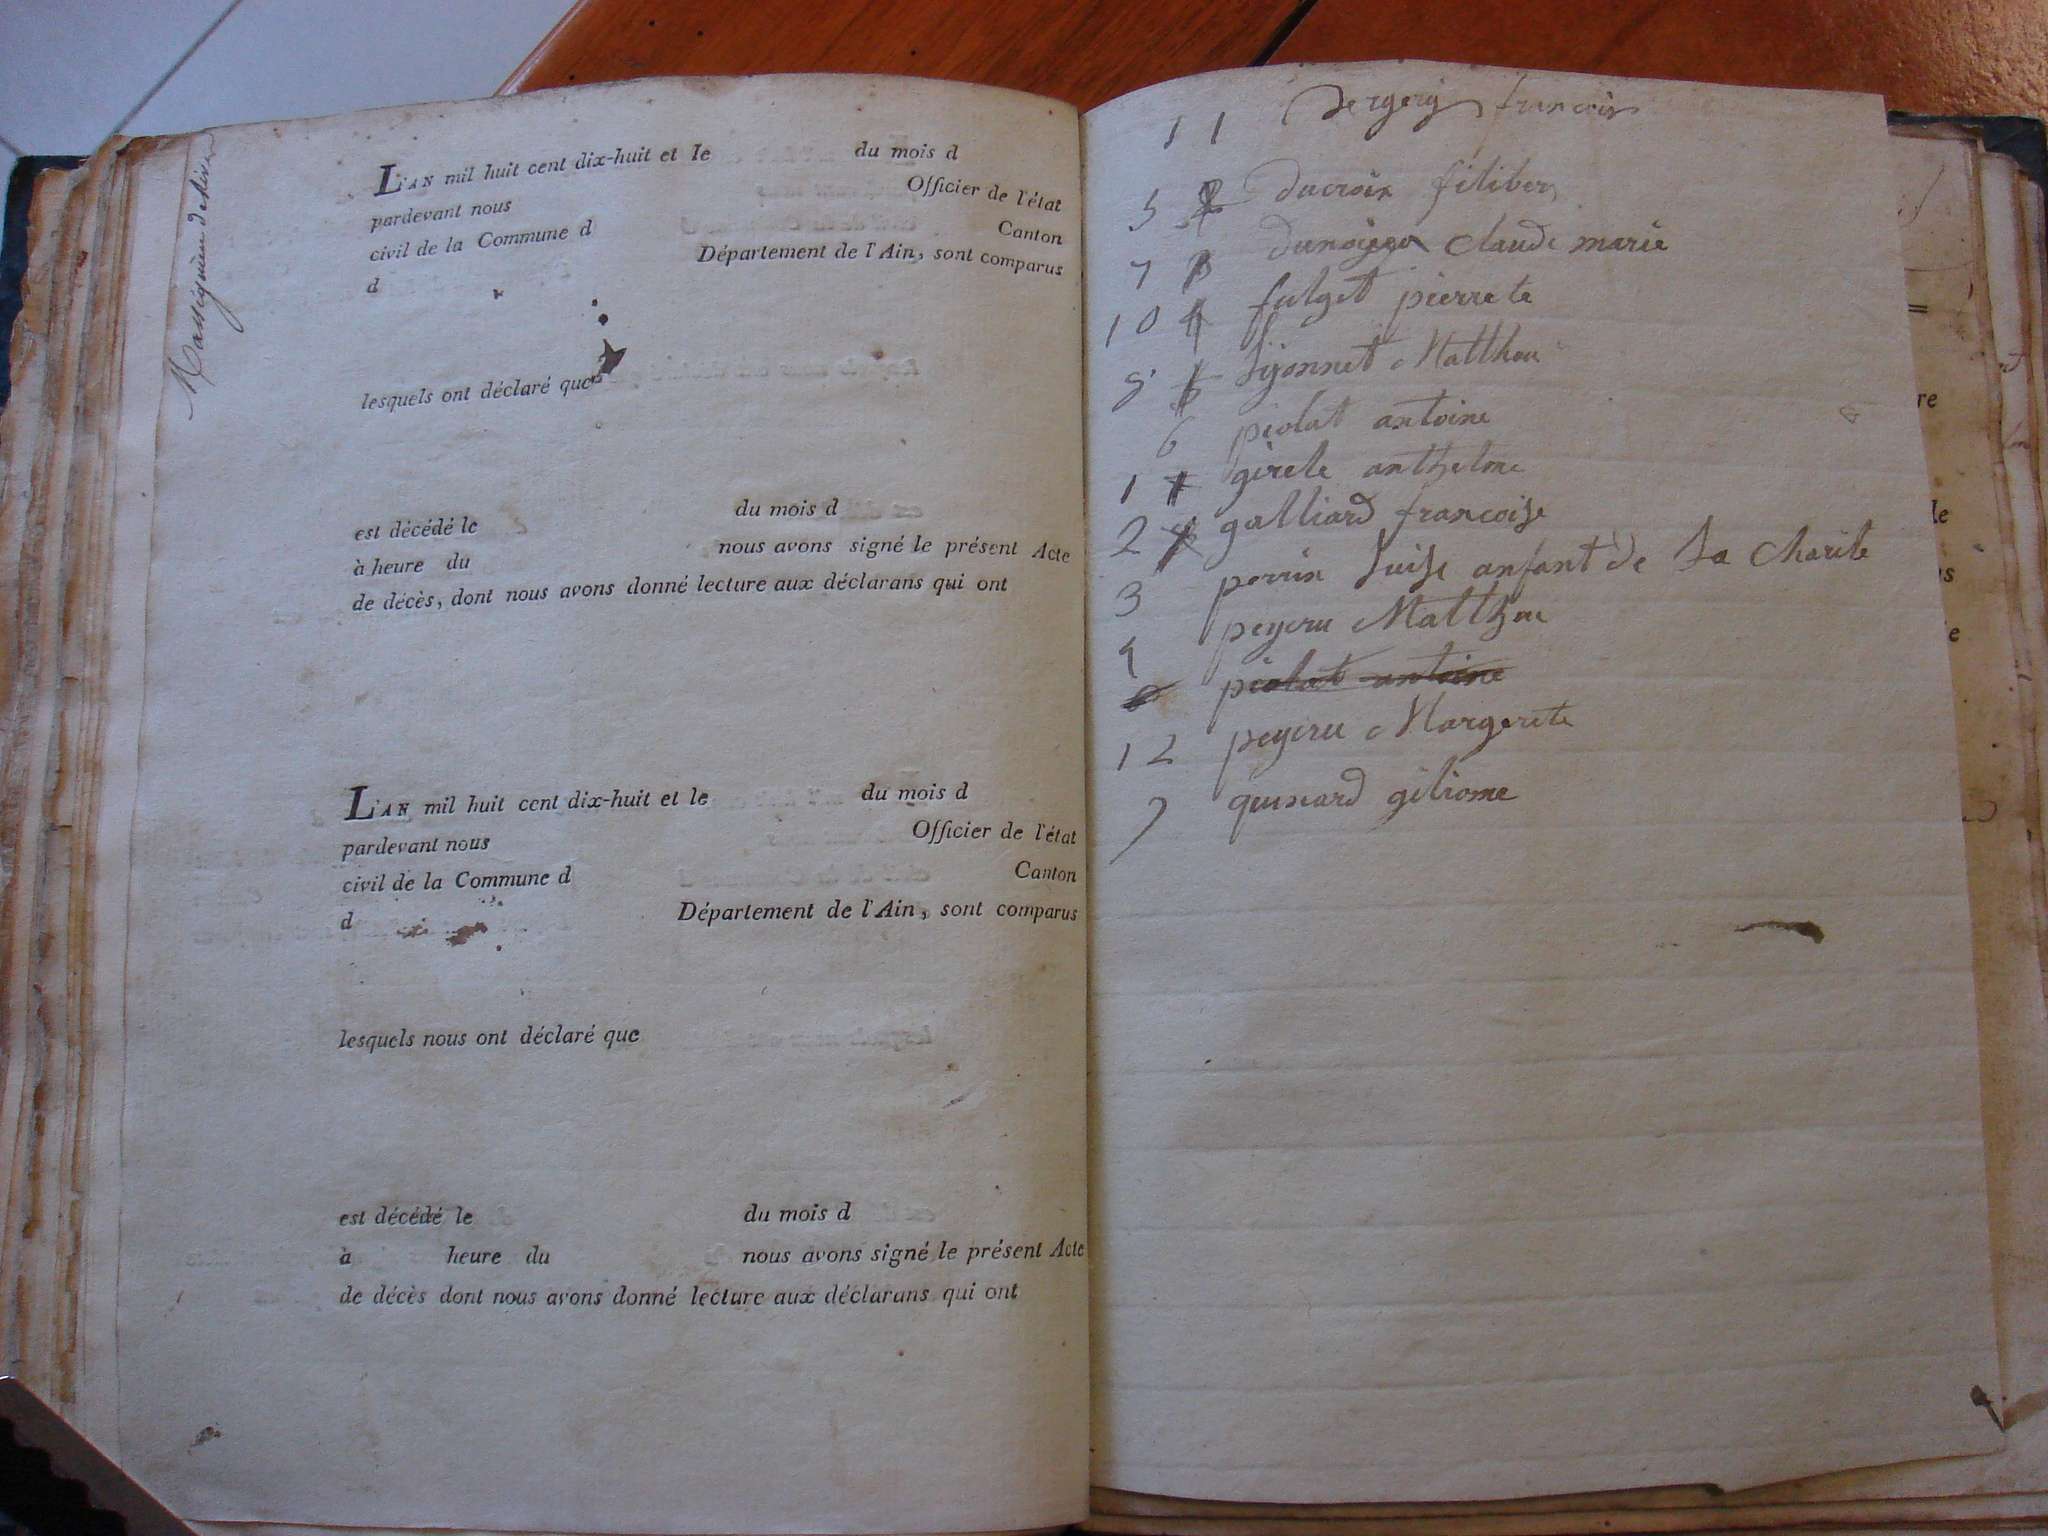 L'AN mil huit cent dix-huit et le du mois d
pardevant nous Officier de l'état
civil de la Commune d Canton
d Département de l'Ain, sont comparus
lesquels ont déclaré que
est décédé le du mois d
à heure du nous avons signé le présent Acte
de décès, dont nous avons donné lecture aux déclarans qui ont
L'AN mil huit cent dix-huit et le du mois d
pardevant nous Officier de l'état
civil de la Commune d Canton
d Département de l'Ain, sont comparus
lesquels nous ont déclaré que
est décédé le du mois d
à heure du nous avons signé le présent Acte
de décès dont nous avons donné lecture aux déclarans qui ont
11 francois
5 2 ducroix filiber
7 3 claude marie
10 4 fulget pierrete
5 Matthieu
6 piolat antoine
1 girele anthelme
2 galliard francoise
3 perrin luise anfant de la charite
4 peyeru
piolat antoine
12 peyeru Margerite
quinard giliome